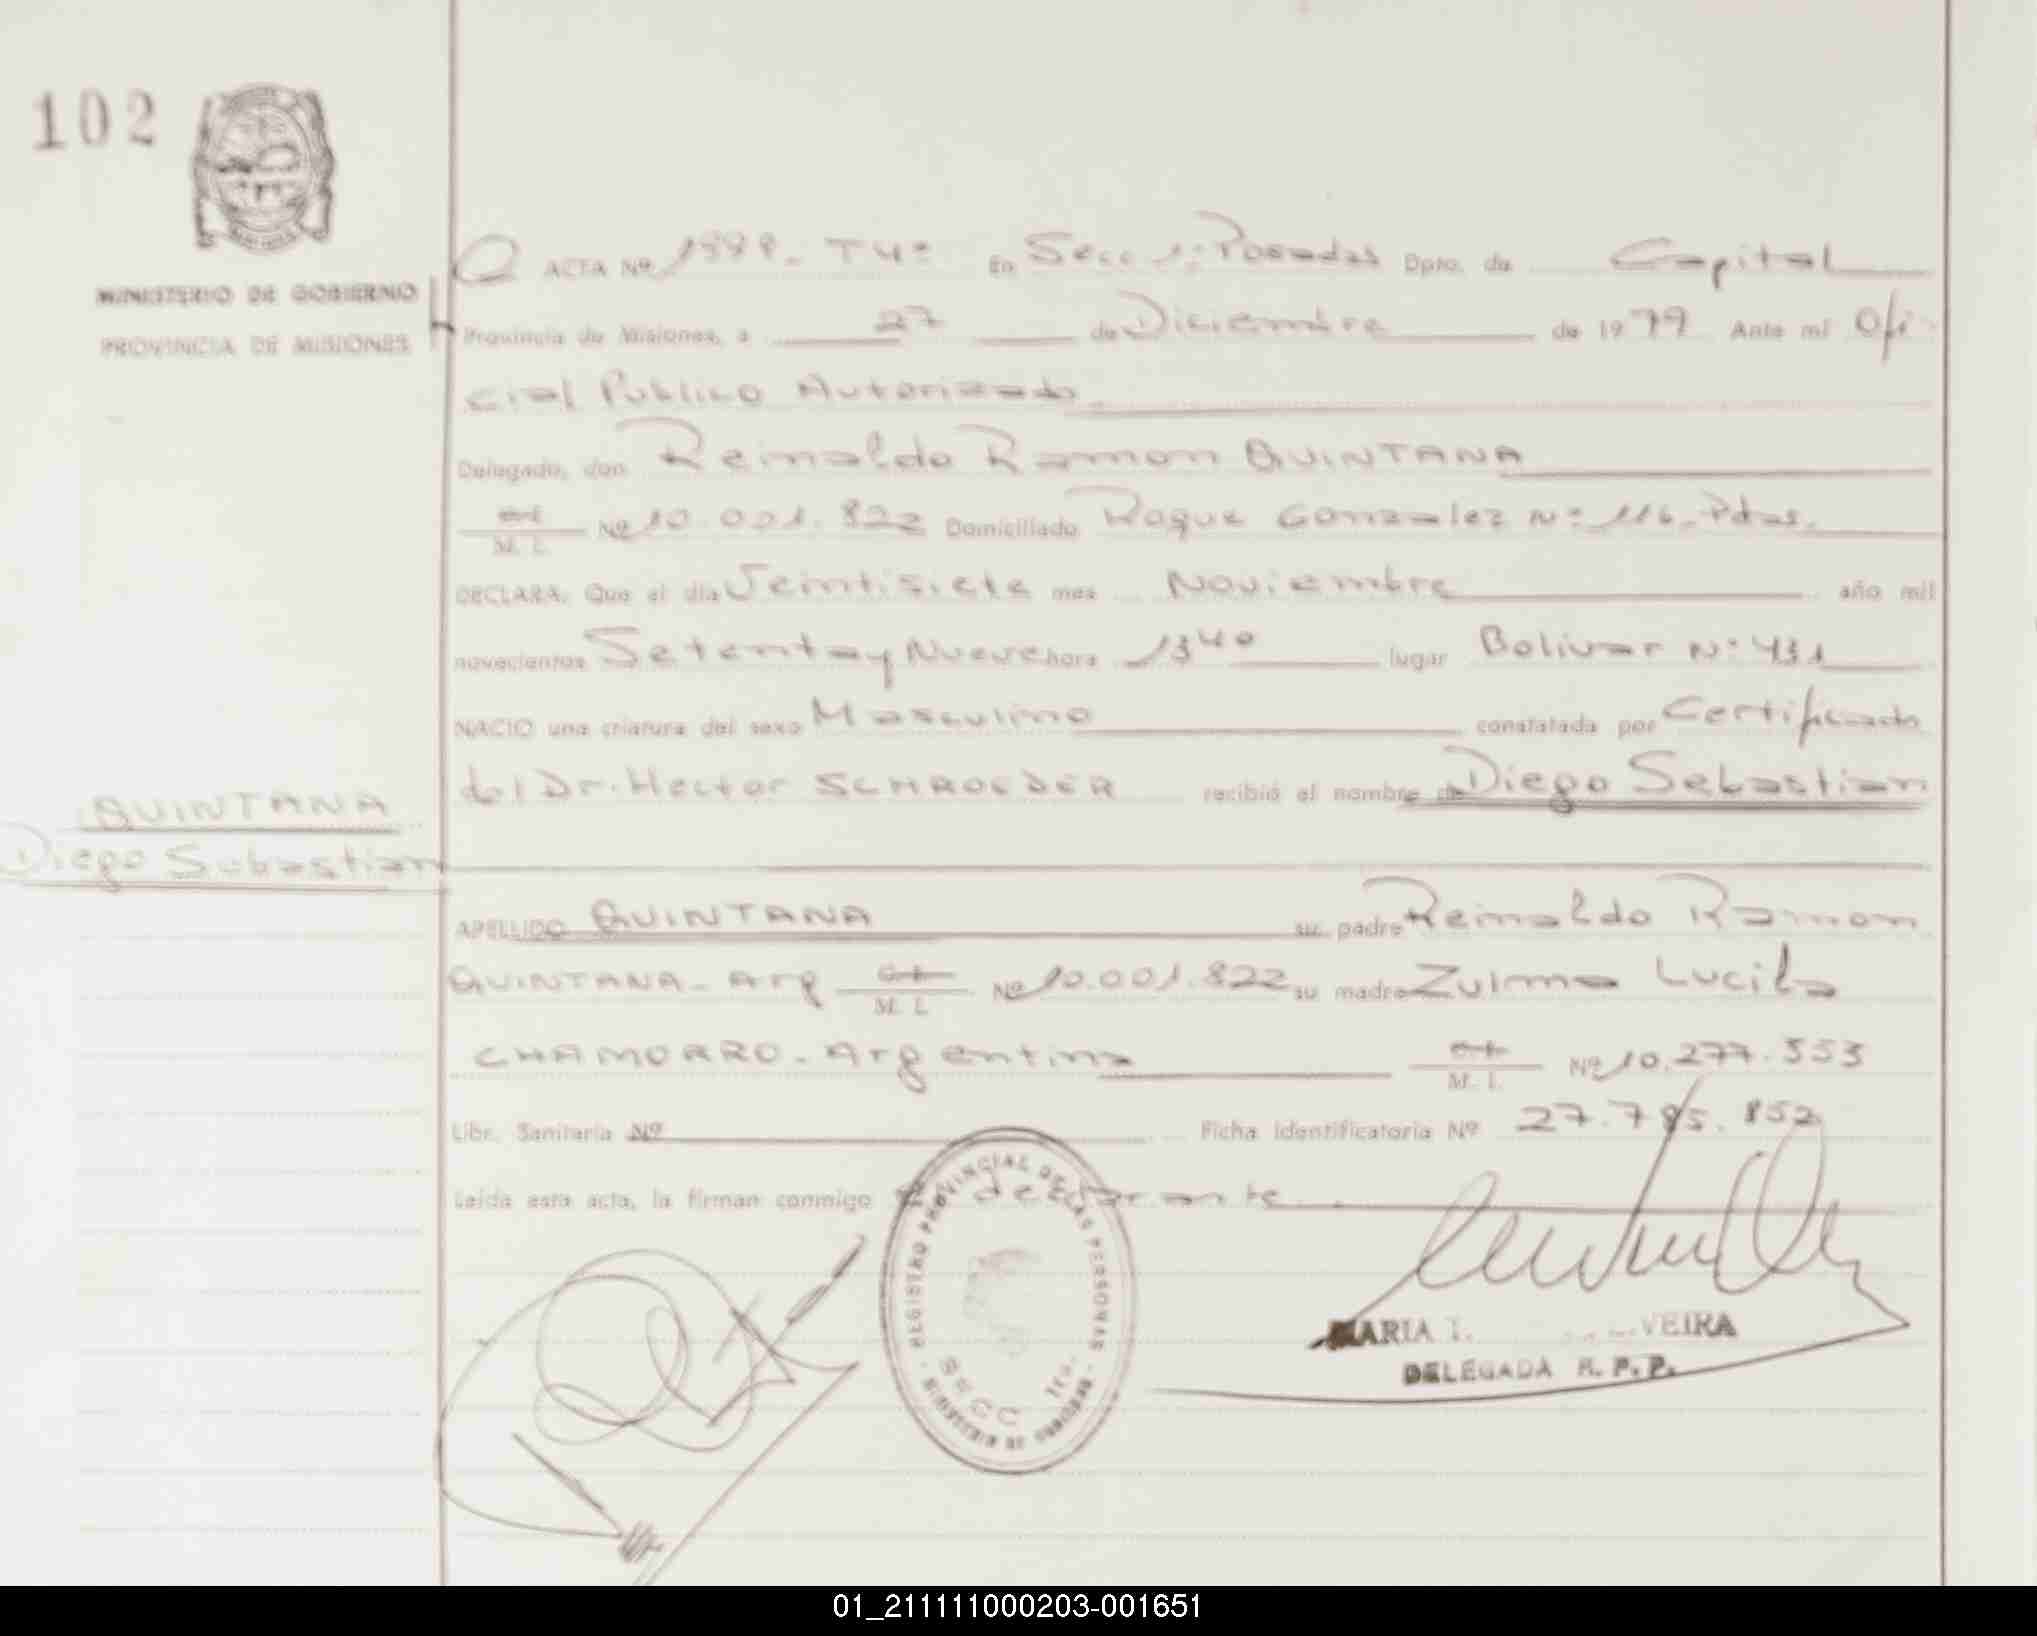 102
MINISTERIO DE GOBIERNO
PROVINCIA DE MISIONES
ACTA Nº 1999 - T4º En Secc 1º: Posadas Dpto. de Capital
Provincia de Misiones, a 27 de Diciembre de 1979 Ante mí Ofi-
cial Publico Autorizado.
Delegado, don Reinaldo Ramon QUINTANA
M. I. Nº 10.001.822 Domiciliado Roque Gonzalez Nº 116 - Pdas.
DECLARA: Que el día Veintisiete mes Noviembre año mil
novecientos Setenta y Nueve hora 13 40 lugar Bolivar Nº 431
NACIO una criatura del sexo Masculino constatada por Certificado
del Dr. Hector SCHROEDER recibió el nombre de Diego Sebastian
QUINTANA
Diego Sebastian
APELLIDO QUINTANA su padre Reinaldo Ramon
QUINTANA - Arg M. I. Nº 10.001.822 su madre Zulma Lucila
CHAMORRO - Argentina M. I. Nº 10.277.553
Libr. Sanitaria Nº Ficha Identificatoria Nº 27.785.852
Leída esta acta, la firman conmigo el declarante.
REGISTRO PROVINCIAL DE LAS PERSONAS
SECC 1ra.
MINISTERIO DE GOBIERNO
MARIA T. VEIRA
DELEGADA R. P. P.
01_211111000203-001651